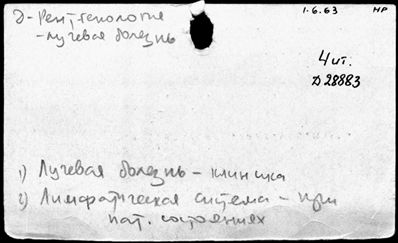 Э-Рентгенология
-лучевая болезнь
1.6.63 НР
4 чт.
Д 28883
1) Лучевая болезнь - клиника
2) Лимфатическая система - при
пат. состояниях